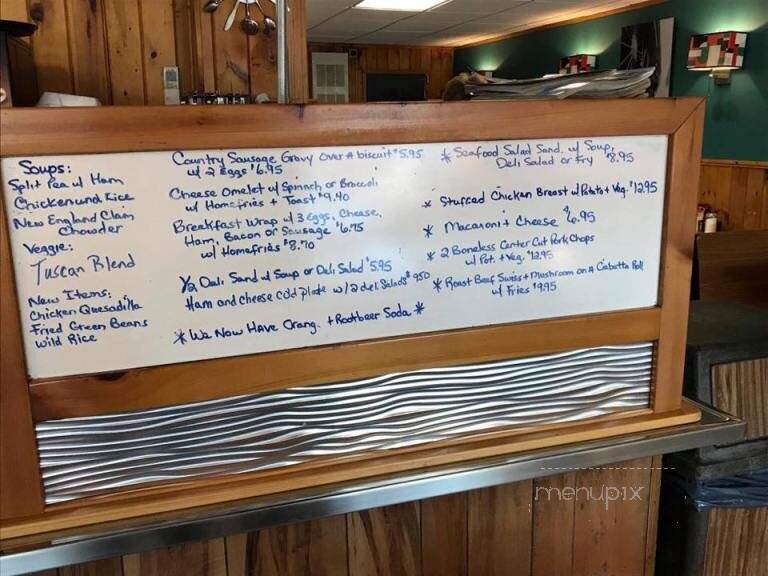 Soups:
Split Pea w/ Ham
Chicken und Rice
New England Clam
Chowder
Veggie:
Tuscan Blend
New Items:
Chicken Quesadilla
Fried Green Beans
Wild Rice
Country Sausage Gravy Over A biscuit $5.95
w/ 2 Eggs $6.95
Cheese Omelet w/ Spinach or Broccoli
w/ Homefries + Toast $9.40
Breakfast Wrap w/ 3 Eggs, Cheese,
Ham, Bacon or Sausage $6.75
w/ Homefries $8.70
1/2 Deli Sand w/ Soup or Deli Salad $5.95
Ham and Cheese Cold plate w/ 2 deli Salads $9.50
* We Now Have Orang. + Rootbeer Soda *
* Seafood Salad Sand. w/ Soup,
Deli Salad or Fry $8.95
* Stuffed Chicken Breast w/ Potato + Veg. $12.95
* Macaroni + Cheese $6.95
* 2 Boneless Center Cut Pork Chops
w/ Pot. + Veg. $12.95
* Roast Beef Swiss + Mushroom on a Ciabatta Roll
w/ Fries $9.95
menupix